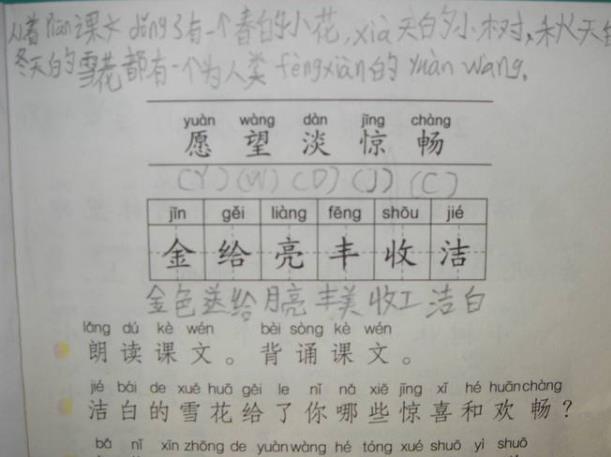 从着lián课文dǒng了有一个春白的小花,xià天白的小树,秋天白
冬天白的雪花都有一个为人类fèngxiàn的yuàn wang。
yuàn wàng dàn jīng chàng
愿 望 淡 惊 畅
(Y) (W) (D) (J) (C)
jīn gěi liàng fēng shōu jié
金 给 亮 丰 收 洁
金色 送给 月亮 丰美 收工 洁白
lǎng dú kè wén bèi sòng kè wén
朗读课文。背诵课文。
jié bái de xuě huā gěi le nǐ nǎ xiē jīng xǐ hé huānchàng
洁白的雪花给了你哪些惊喜和欢畅?
bǎ nǐ xīn zhōng de yuànwàng hé tóng xué shuō yì shuō